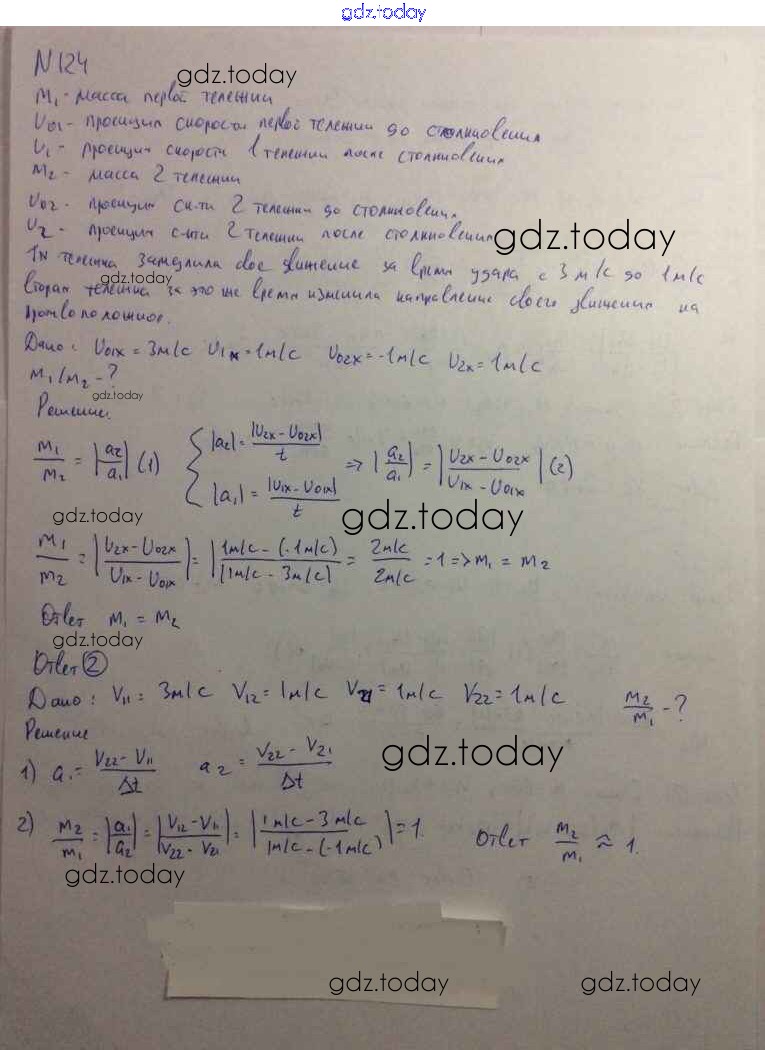 gdz.today
N 124
gdz.today
m₁ - масса первой тележки
υ₀₁ - проекция скорости первой тележки до столкновения
υ₁ - проекция скорости 1 тележки после столкновения
m₂ - масса 2 тележки
υ₀₂ - проекция ск-ти 2 тележки до столкновения
υ₂ - проекция с-ти 2 тележки после столкновения
gdz.today
1я тележка замедлила свое движение за время удара с 3 м/с до 1 м/с
gdz.today
вторая тележка за это же время изменила направление своего движения на
противоположное.
Дано: υ₀₁ₓ = 3м/с υ₁ₓ = 1м/с υ₀₂ₓ = -1м/с υ₂ₓ = 1м/с
m₁/m₂ - ?
gdz.today
Решение.
m₁/m₂ = |a₂/a₁| (1) { |a₂| = |υ₂ₓ - υ₀₂ₓ|/t |a₁| = |υ₁ₓ - υ₀₁ₓ|/t => |a₂/a₁| = |(υ₂ₓ - υ₀₂ₓ)/(υ₁ₓ - υ₀₁ₓ)| (2)
gdz.today gdz.today
m₁/m₂ = |(υ₂ₓ - υ₀₂ₓ)/(υ₁ₓ - υ₀₁ₓ)| = |1м/с - (-1м/с)|/|1м/с - 3м/с| = 2м/с/2м/с = 1 => m₁ = m₂
Ответ m₁ = m₂
gdz.today
Ответ ②
Дано: V₁₁ = 3м/с V₁₂ = 1м/с V₂₁ = 1м/с V₂₂ = 1м/с m₂/m₁ - ?
Решение
1) a₁ = (V₂₂ - V₁₁)/Δt a₂ = (V₂₂ - V₂₁)/Δt
gdz.today
2) m₂/m₁ = |a₁/a₂| = |(V₁₂ - V₁₁)/(V₂₂ - V₂₁)| = |(1м/с - 3м/с)/(1м/с - (-1м/с))| = 1. Ответ m₂/m₁ ≈ 1.
gdz.today
gdz.today gdz.today